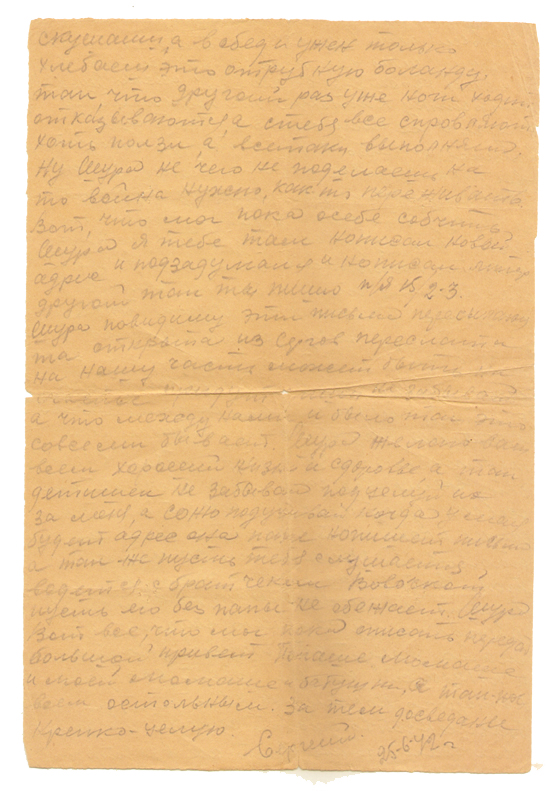 скушаеш, а в обед и ужен только
хлебаем это отрубную боланду,
так что другой раз уже ночи ходит
отказываются а с тебя все спрашивают
хоть ползи, а всетаки выполняй.
Ну Шура не чего не поделаеш на
то война нужно, как то переживать
Вот, что мог пока осебе собчить
Шура я тебе там написал новой
адрес и подзадумался и написал
другой так ты пишо п/я 15, 2-3.
Шура повидиму эти письма
та открыта из Сергов
на нашу часть может быть
а что между нами и было так это
совсем бывает. Шура желаю вам
всем харошей жизни и здоровье а так
детишек не забывай поцелуй их
за меня, а Соню подучивай когда у меня
будет адрес она пусть напишит письмо
а так же пусть тебя слушаится
водится с братчеком Вовочкой
пусть его без папы не обежает. Шура
Вот все, что мог пока описать передай
большой привет Папаше Мамаше
и моей мамаше бабушки, а так-же
всем остольным. За тем досведанье
Крепко-целую.
Сергий. 25-6-42 г